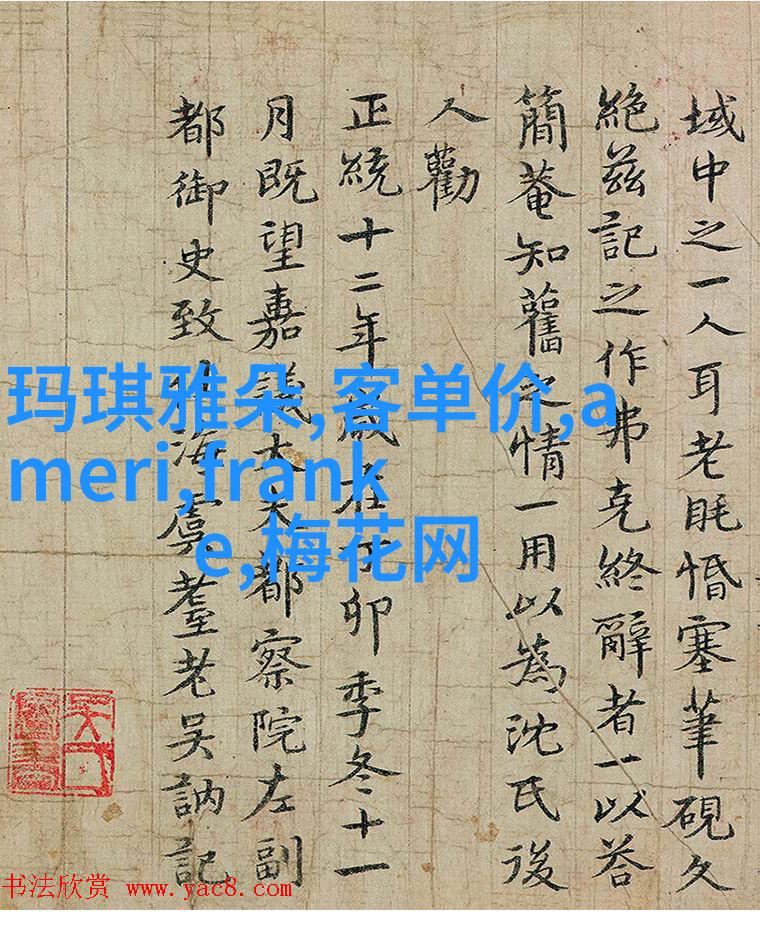 域中之一人耳老眊惛塞筆硯久
絶茲記之作弗克終辭者一以荅
簡菴知舊之情一用以為沈氏後
人勸
正統十二年歲在丁卯季冬十一
月既望嘉議大夫都察院左副
都御史致仕海虞耋老吳訥記
玛琪雅朵,客单价,a
meri,frank
e,梅花网
书法欣赏 www.yac8.com